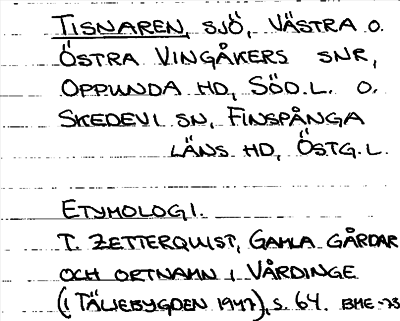 TISNAREN, SJÖ, VÄSTRA O.
ÖSTRA VINGÅKERS SNR,
OPPUNDA HD, SÖD.L. O.
SKEDEVI SN, FINSPÅNGA
LÄNS HD, ÖSTG.L.
ETYMOLOGI.
T. ZETTERQUIST, GAMLA GÅRDAR
OCH ORTNAMN I VÅRDINGE
(I TÄLJEBYGDEN 1947), S. 64. BME-73